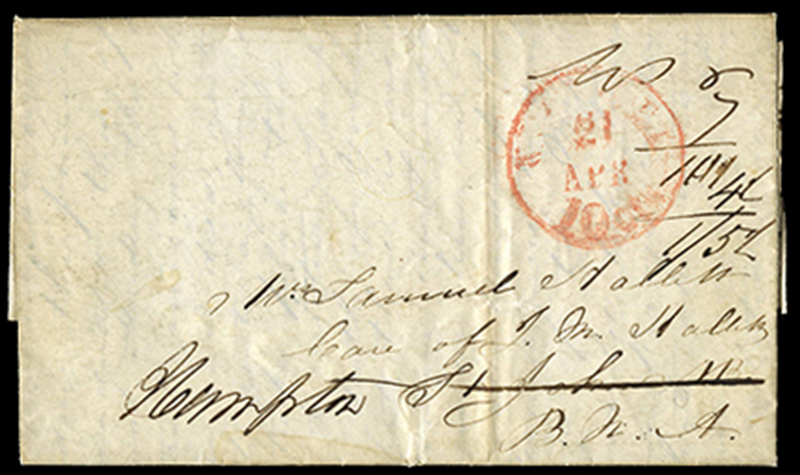 21
APR
10 cts
7
1/11 1/2
4 1/2
1/5 1/2
Mr. Samuel Hallett
Care of J. M. Hallett
Hampton St John NB.
B. N. A.